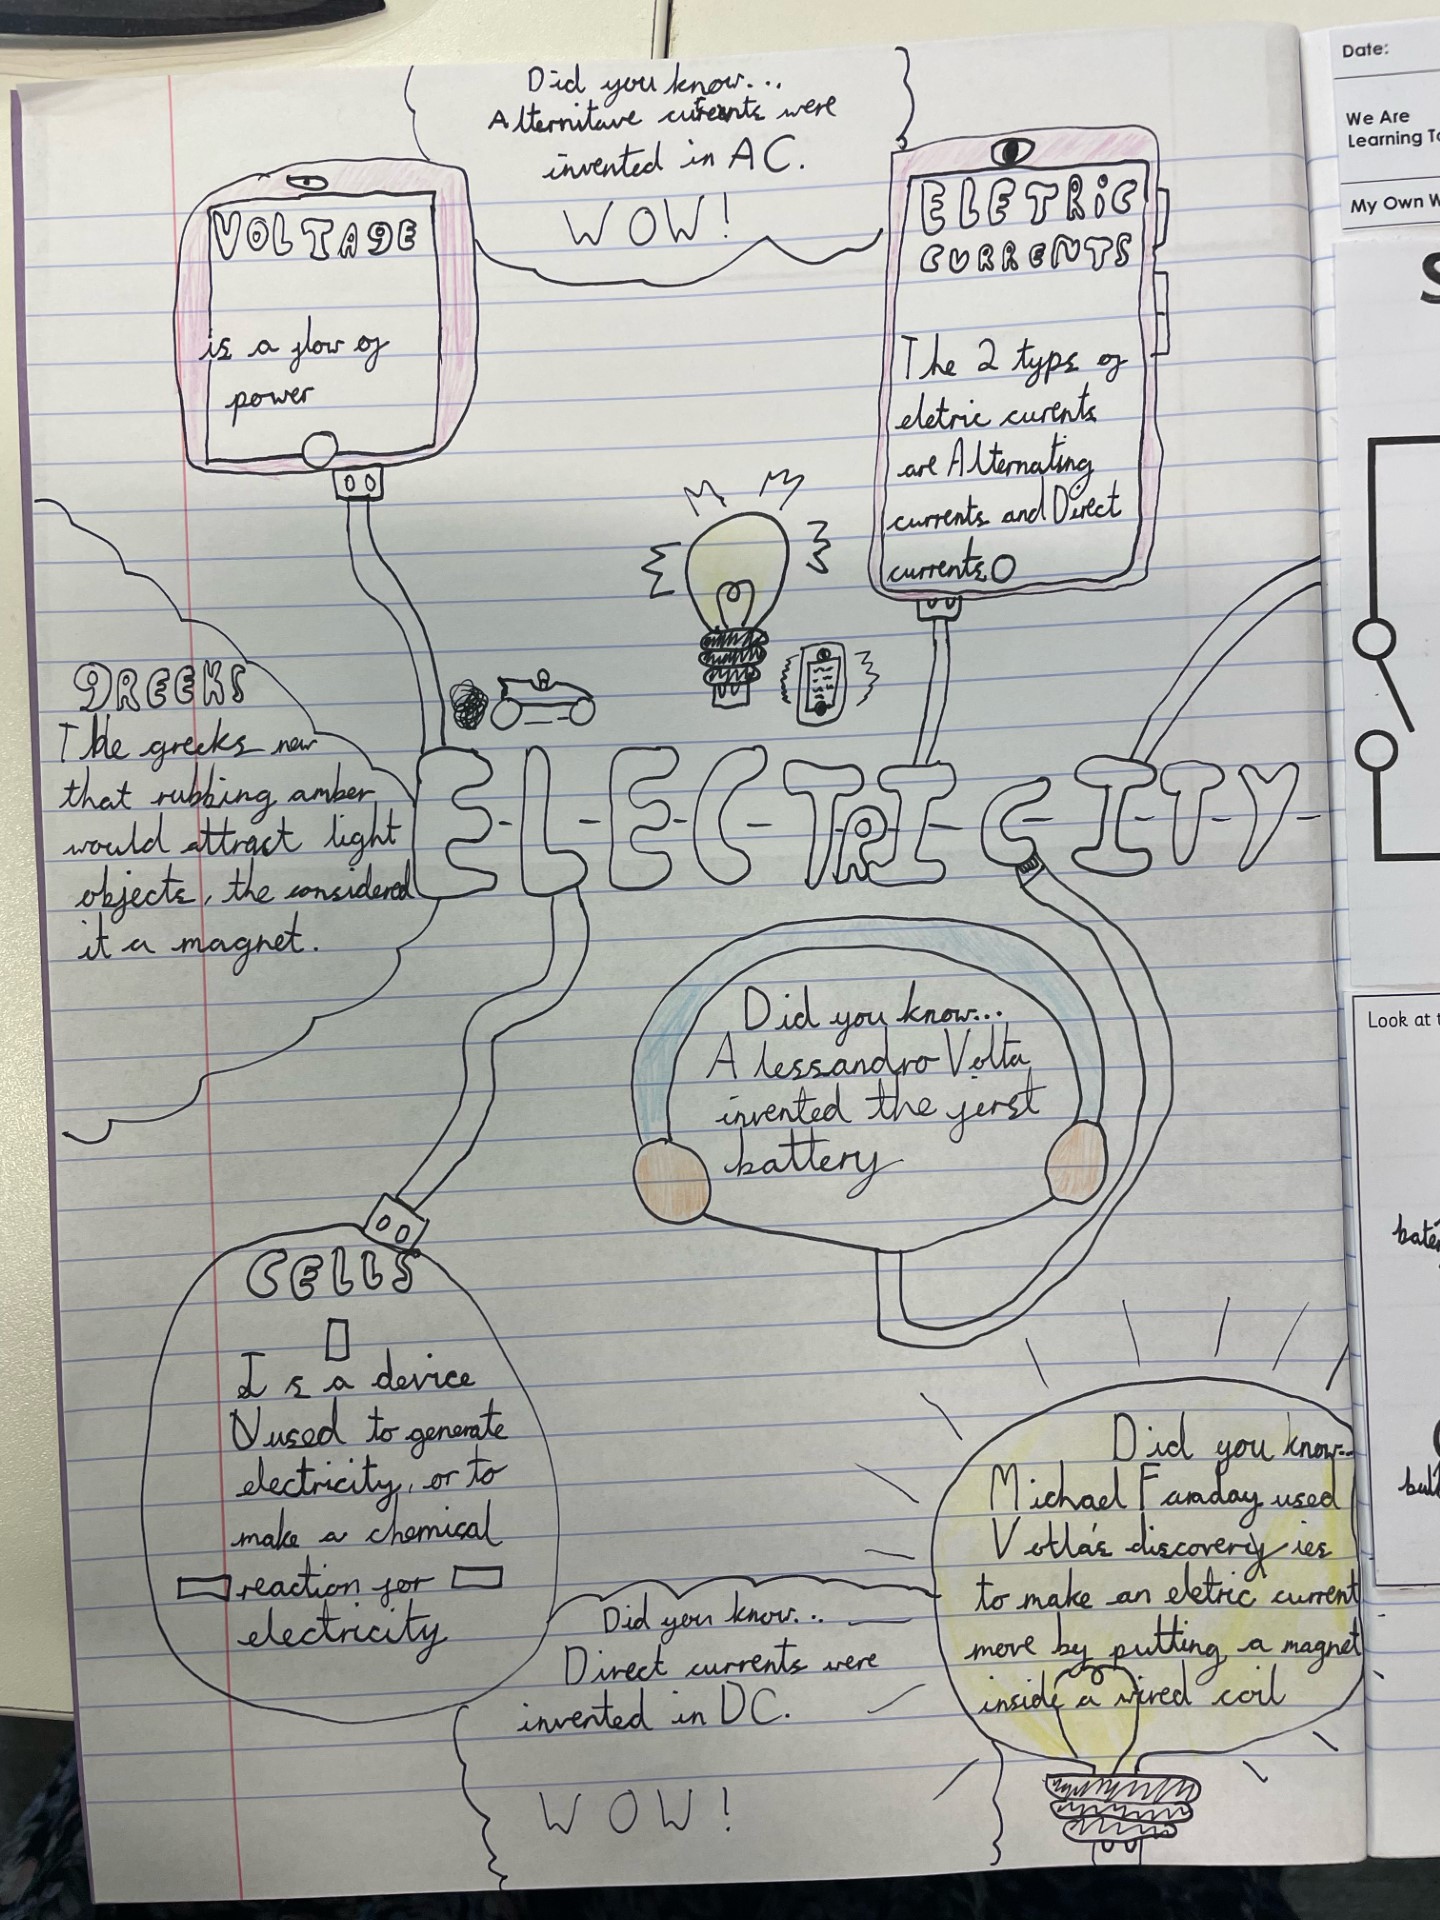 Did you know...
Alternitave curents were
invented in AC.
WOW!
VOLTAGE
is a flow of
power
ELETRIC
CURRENTS
The 2 type of
eletric curents
are Alternating
currents and Direct
currents
GREEKS
The greeks new
that rubbing amber
would attract light
objects, the considered
it a magnet.
E-L-E-C-TRI-C-ITY-
Did you know...
Alessandro Volta
invented the ferst
battery
CELLS
Is a device
used to generate
electricity, or to
make a chemical
reaction for
electricity
Did you know...
Direct currents were
invented in DC.
WOW!
Did you know...
Michael Faraday used
Votla's discoveryies
to make an eletric current
move by putting a magnet
inside a wired coil
Date:
We Are
Learning To
My Own W
S
Look at t
bate
bul